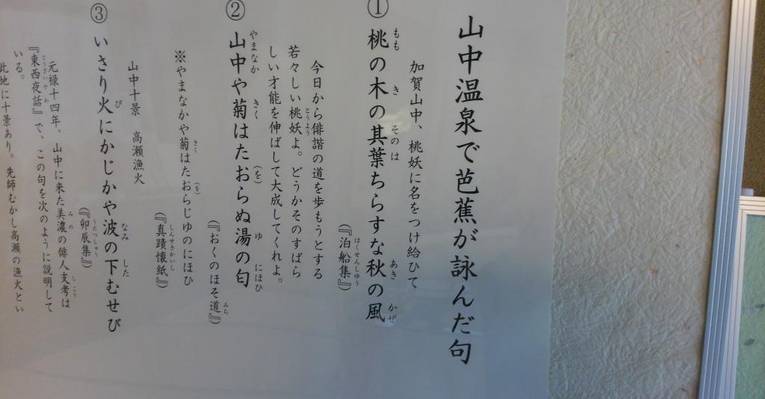 山中温泉で芭蕉が詠んだ句
加賀山中、桃妖に名をつけ給ひて
① 桃の木の其葉ちらすな秋の風
『泊船集』
今日から俳諧の道を歩もうとする
若々しい桃妖よ。どうかそのすばら
しい才能を伸ばして大成してくれよ。
② 山中や菊はたおらぬ湯の匂
『おくのほそ道』
※やまなかや菊はたおらじゆのにほひ
『真蹟懐紙』
山中十景 高瀬漁火
③ いさり火にかじかや波の下むせび
『卯辰集』
元禄十四年、山中に来た美濃の俳人支考は
『東西夜話』で、この句を次のように説明して
いる。
此地に十景あり。先師むかし高瀬の漁火とい